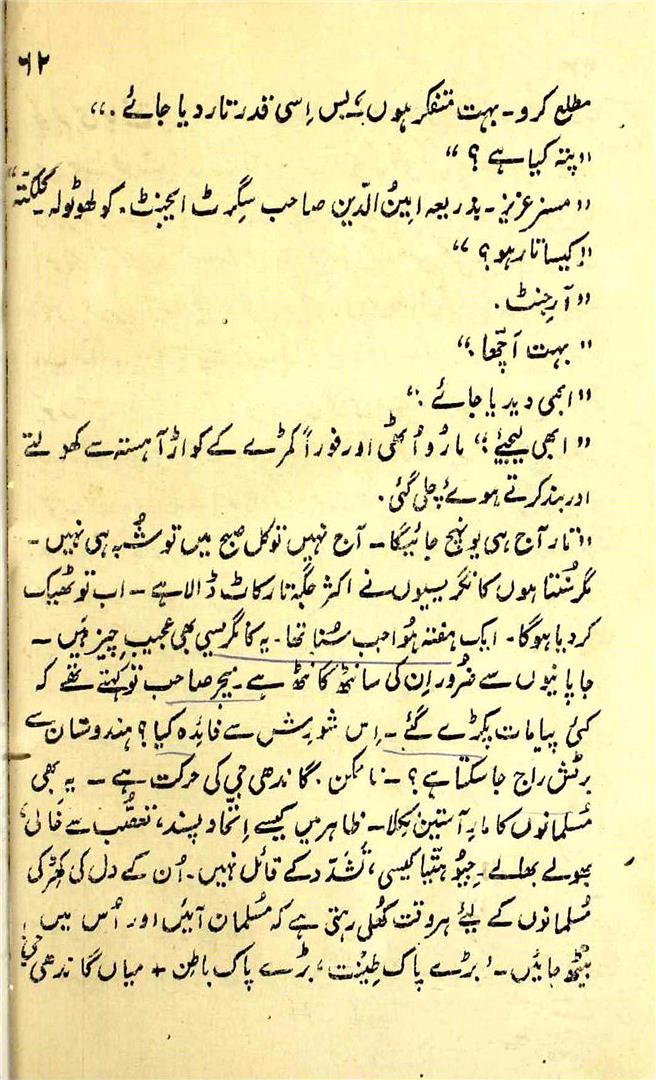 ۶۲
مطلع کرو۔ بہت متفکر ہوں؛ بس اِسی قدر تار دیا جائے ۔"
"پتہ کیا ہے ؟ "
"مسز عزیز۔ بذریعہ امینُ الدّین صاحب سگرٹ ایجنٹ۔ کولھوٹولہ۔ کلکتّہ"
"کیسا تار ہو؟ "
"آرجنٹ ۔
"بہت اچّھا ۔"
"ابھی دیدیا جائے ۔"
"ابھی لیجئے ؛" مارُو اُٹھی اور فوراً کمرے کے کواڑ آہستہ سے کھولتے
اور بند کرتے ہوئے چلی گئی ۔
"تار آج ہی پونہچ جائیگا۔ آج نہیں تو کل صبح میں تو شُبہ ہی نہیں ۔
مگر سُنتا ہوں کانگریسیوں نے اکثر جگہ تار کاٹ ڈالا ہے ۔ اب تو ٹھیک
کر دیا ہوگا۔ ایک ہفتہ ہُوا جب سُنا تھا۔ یہ کانگریسی بھی عجیب چیز ہیں ۔
جاپانیوں سے ضرُور اِن کی سانٹھ گانٹھ ہے۔ میجر صاحب تو کہتے تھے کہ
کئی پیامات پکڑے گئے ۔ اِس شورش سے فائدہ کیا ؟ ہندوستان سے
برٹش راج جا سکتا ہے ؟ ۔ ناممکن ۔ گاندھی جی کی حرکت ہے ۔ یہ بھی
مُسلمانوں کا مارِ آستین نِکلا۔ ظاہر میں کیسے اِتّحاد پسند، تعصّب سے خالی،
بھولے بھالے۔ جیو ہتّیا کیسی، تشدّد کے قائل نہیں۔ اُن کے دل کی کھڑکی
مُسلمانوں کے لیے ہر وقت کھُلی رہتی ہے کہ مُسلمان آئیں اور اُس میں
بیٹھ جائیں ۔ بڑے پاک طینت، بڑے پاک باطن + میاں گاندھی جی